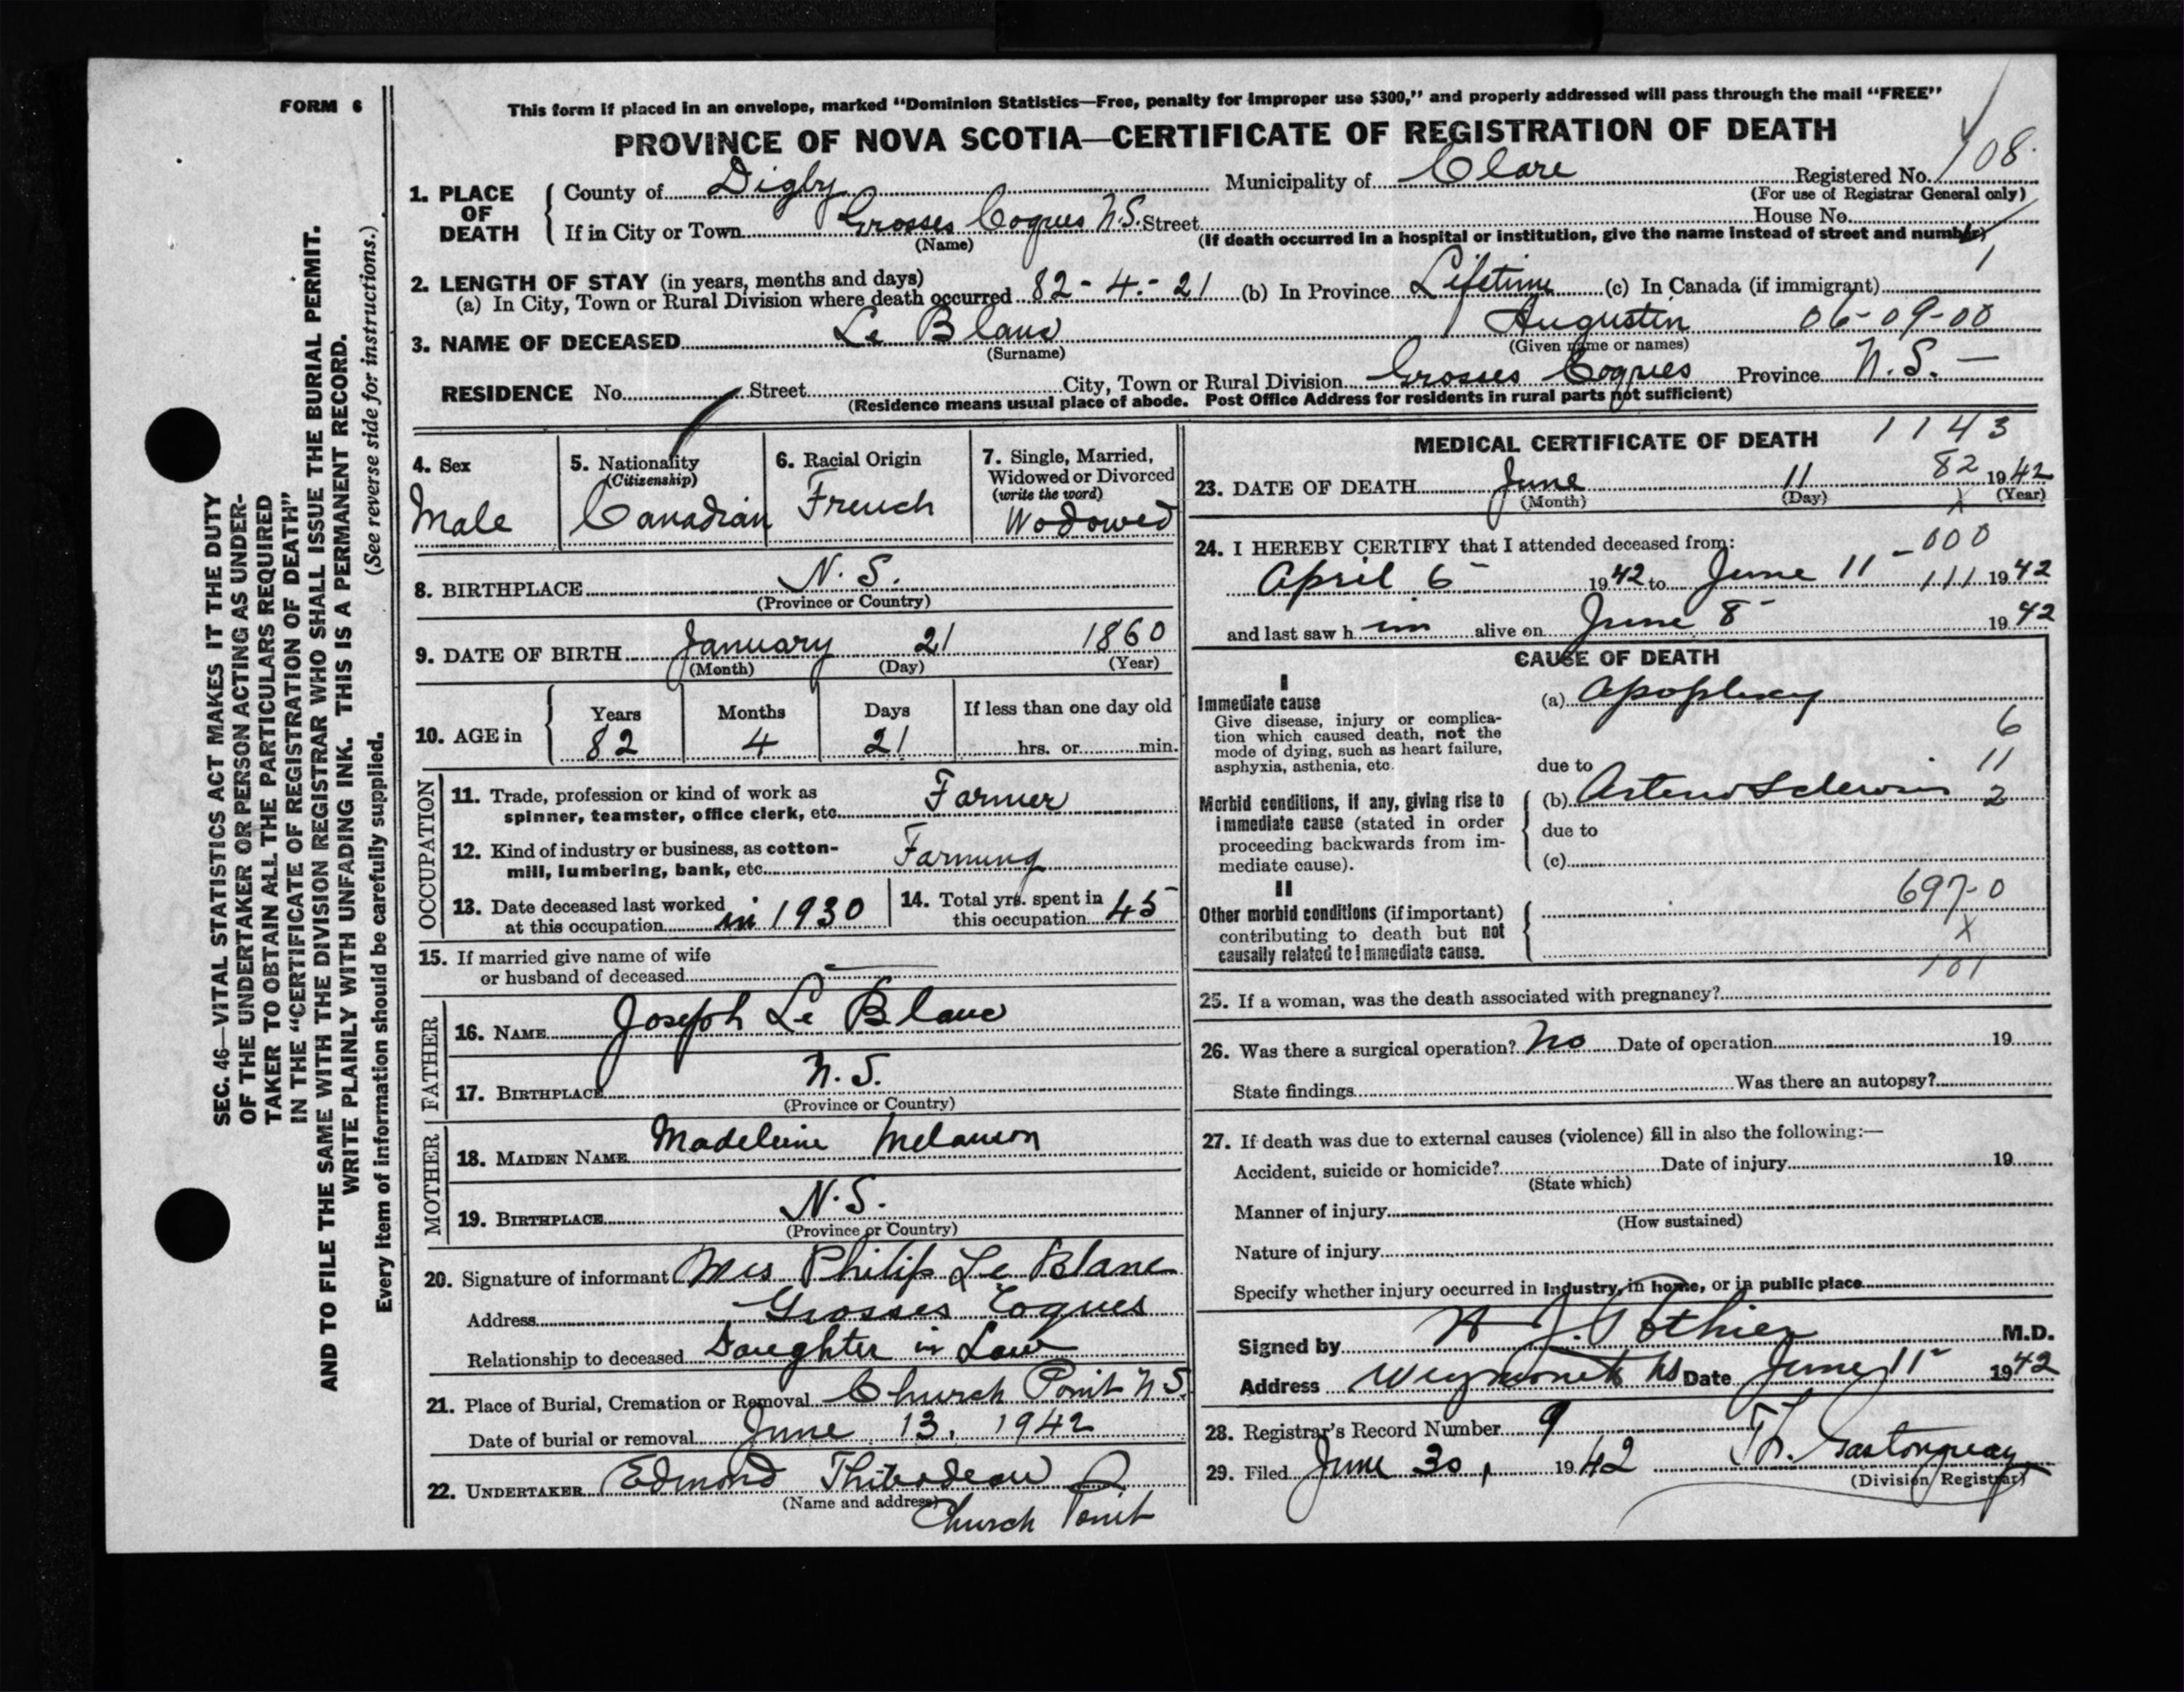 FORM 6
This form if placed in an envelope, marked “Dominion Statistics—Free, penalty for improper use $300,” and properly addressed will pass through the mail “FREE”
PROVINCE OF NOVA SCOTIA—CERTIFICATE OF REGISTRATION OF DEATH
SEC. 46—VITAL STATISTICS ACT MAKES IT THE DUTY
OF THE UNDERTAKER OR PERSON ACTING AS UNDER-
TAKER TO OBTAIN ALL THE PARTICULARS REQUIRED
IN THE “CERTIFICATE OF REGISTRATION OF DEATH”
AND TO FILE THE SAME WITH THE DIVISION REGISTRAR WHO SHALL ISSUE THE BURIAL PERMIT.
WRITE PLAINLY WITH UNFADING INK. THIS IS A PERMANENT RECORD.
(See reverse side for instructions.)
Every item of information should be carefully supplied.
1. PLACE OF DEATH
County of Digby Municipality of Clare Registered No. 108
(For use of Registrar General only)
If in City or Town Grosses Coques N.S. Street House No.
(Name) (If death occurred in a hospital or institution, give the name instead of street and number)
1
2. LENGTH OF STAY (in years, months and days)
(a) In City, Town or Rural Division where death occurred 82-4-21 (b) In Province Lifetime (c) In Canada (if immigrant)
3. NAME OF DECEASED Le Blanc Augustin 06-09-00
(Surname) (Given name or names)
RESIDENCE No. Street City, Town or Rural Division Grosses Coques Province N.S. —
(Residence means usual place of abode. Post Office Address for residents in rural parts not sufficient)
4. Sex
Male
5. Nationality
(Citizenship)
Canadian
6. Racial Origin
French
7. Single, Married,
Widowed or Divorced
(write the word)
Wodowed
8. BIRTHPLACE N.S.
(Province or Country)
9. DATE OF BIRTH January 21 1860
(Month) (Day) (Year)
10. AGE in
Years Months Days If less than one day old
82 4 21 hrs. or min.
OCCUPATION
11. Trade, profession or kind of work as
spinner, teamster, office clerk, etc. Farmer
12. Kind of industry or business, as cotton-
mill, lumbering, bank, etc. Farming
13. Date deceased last worked
at this occupation in 1930
14. Total yrs. spent in
this occupation 45
15. If married give name of wife
or husband of deceased —
FATHER
16. NAME Joseph Le Blanc
17. BIRTHPLACE N.S.
(Province or Country)
MOTHER
18. MAIDEN NAME Madeleine Melanson
19. BIRTHPLACE N.S.
(Province or Country)
20. Signature of informant Mrs Philip Le Blanc
Address Grosses Coques
Relationship to deceased Daughter in Law
21. Place of Burial, Cremation or Removal Church Point N S.
Date of burial or removal June 13, 1942
22. UNDERTAKER Edmond Thibodeau
(Name and address)
Church Point
MEDICAL CERTIFICATE OF DEATH 1143
82
23. DATE OF DEATH June 11 1942
(Month) (Day) (Year)
X
24. I HEREBY CERTIFY that I attended deceased from:
-000
April 6 1942 to June 11 111 1942
and last saw h im alive on June 8 1942
CAUSE OF DEATH
I
Immediate cause
Give disease, injury or complica-
tion which caused death, not the
mode of dying, such as heart failure,
asphyxia, asthenia, etc.
(a) Apoplexy
6
11
2
due to
Morbid conditions, if any, giving rise to
immediate cause (stated in order
proceeding backwards from im-
mediate cause).
(b) Arterio Sclerosis
due to
(c)
II
Other morbid conditions (if important)
contributing to death but not
causally related to immediate cause.
697-0
X
101
25. If a woman, was the death associated with pregnancy?
26. Was there a surgical operation? No Date of operation 19
State findings Was there an autopsy?
27. If death was due to external causes (violence) fill in also the following:—
Accident, suicide or homicide? Date of injury 19
(State which)
Manner of injury
(How sustained)
Nature of injury
Specify whether injury occurred in industry, in home, or in public place
Signed by J. Pothier M.D.
Address Weymouth NS Date June 11 1942
28. Registrar's Record Number 9
29. Filed June 30, 1942 Gastonguay
(Division Registrar)